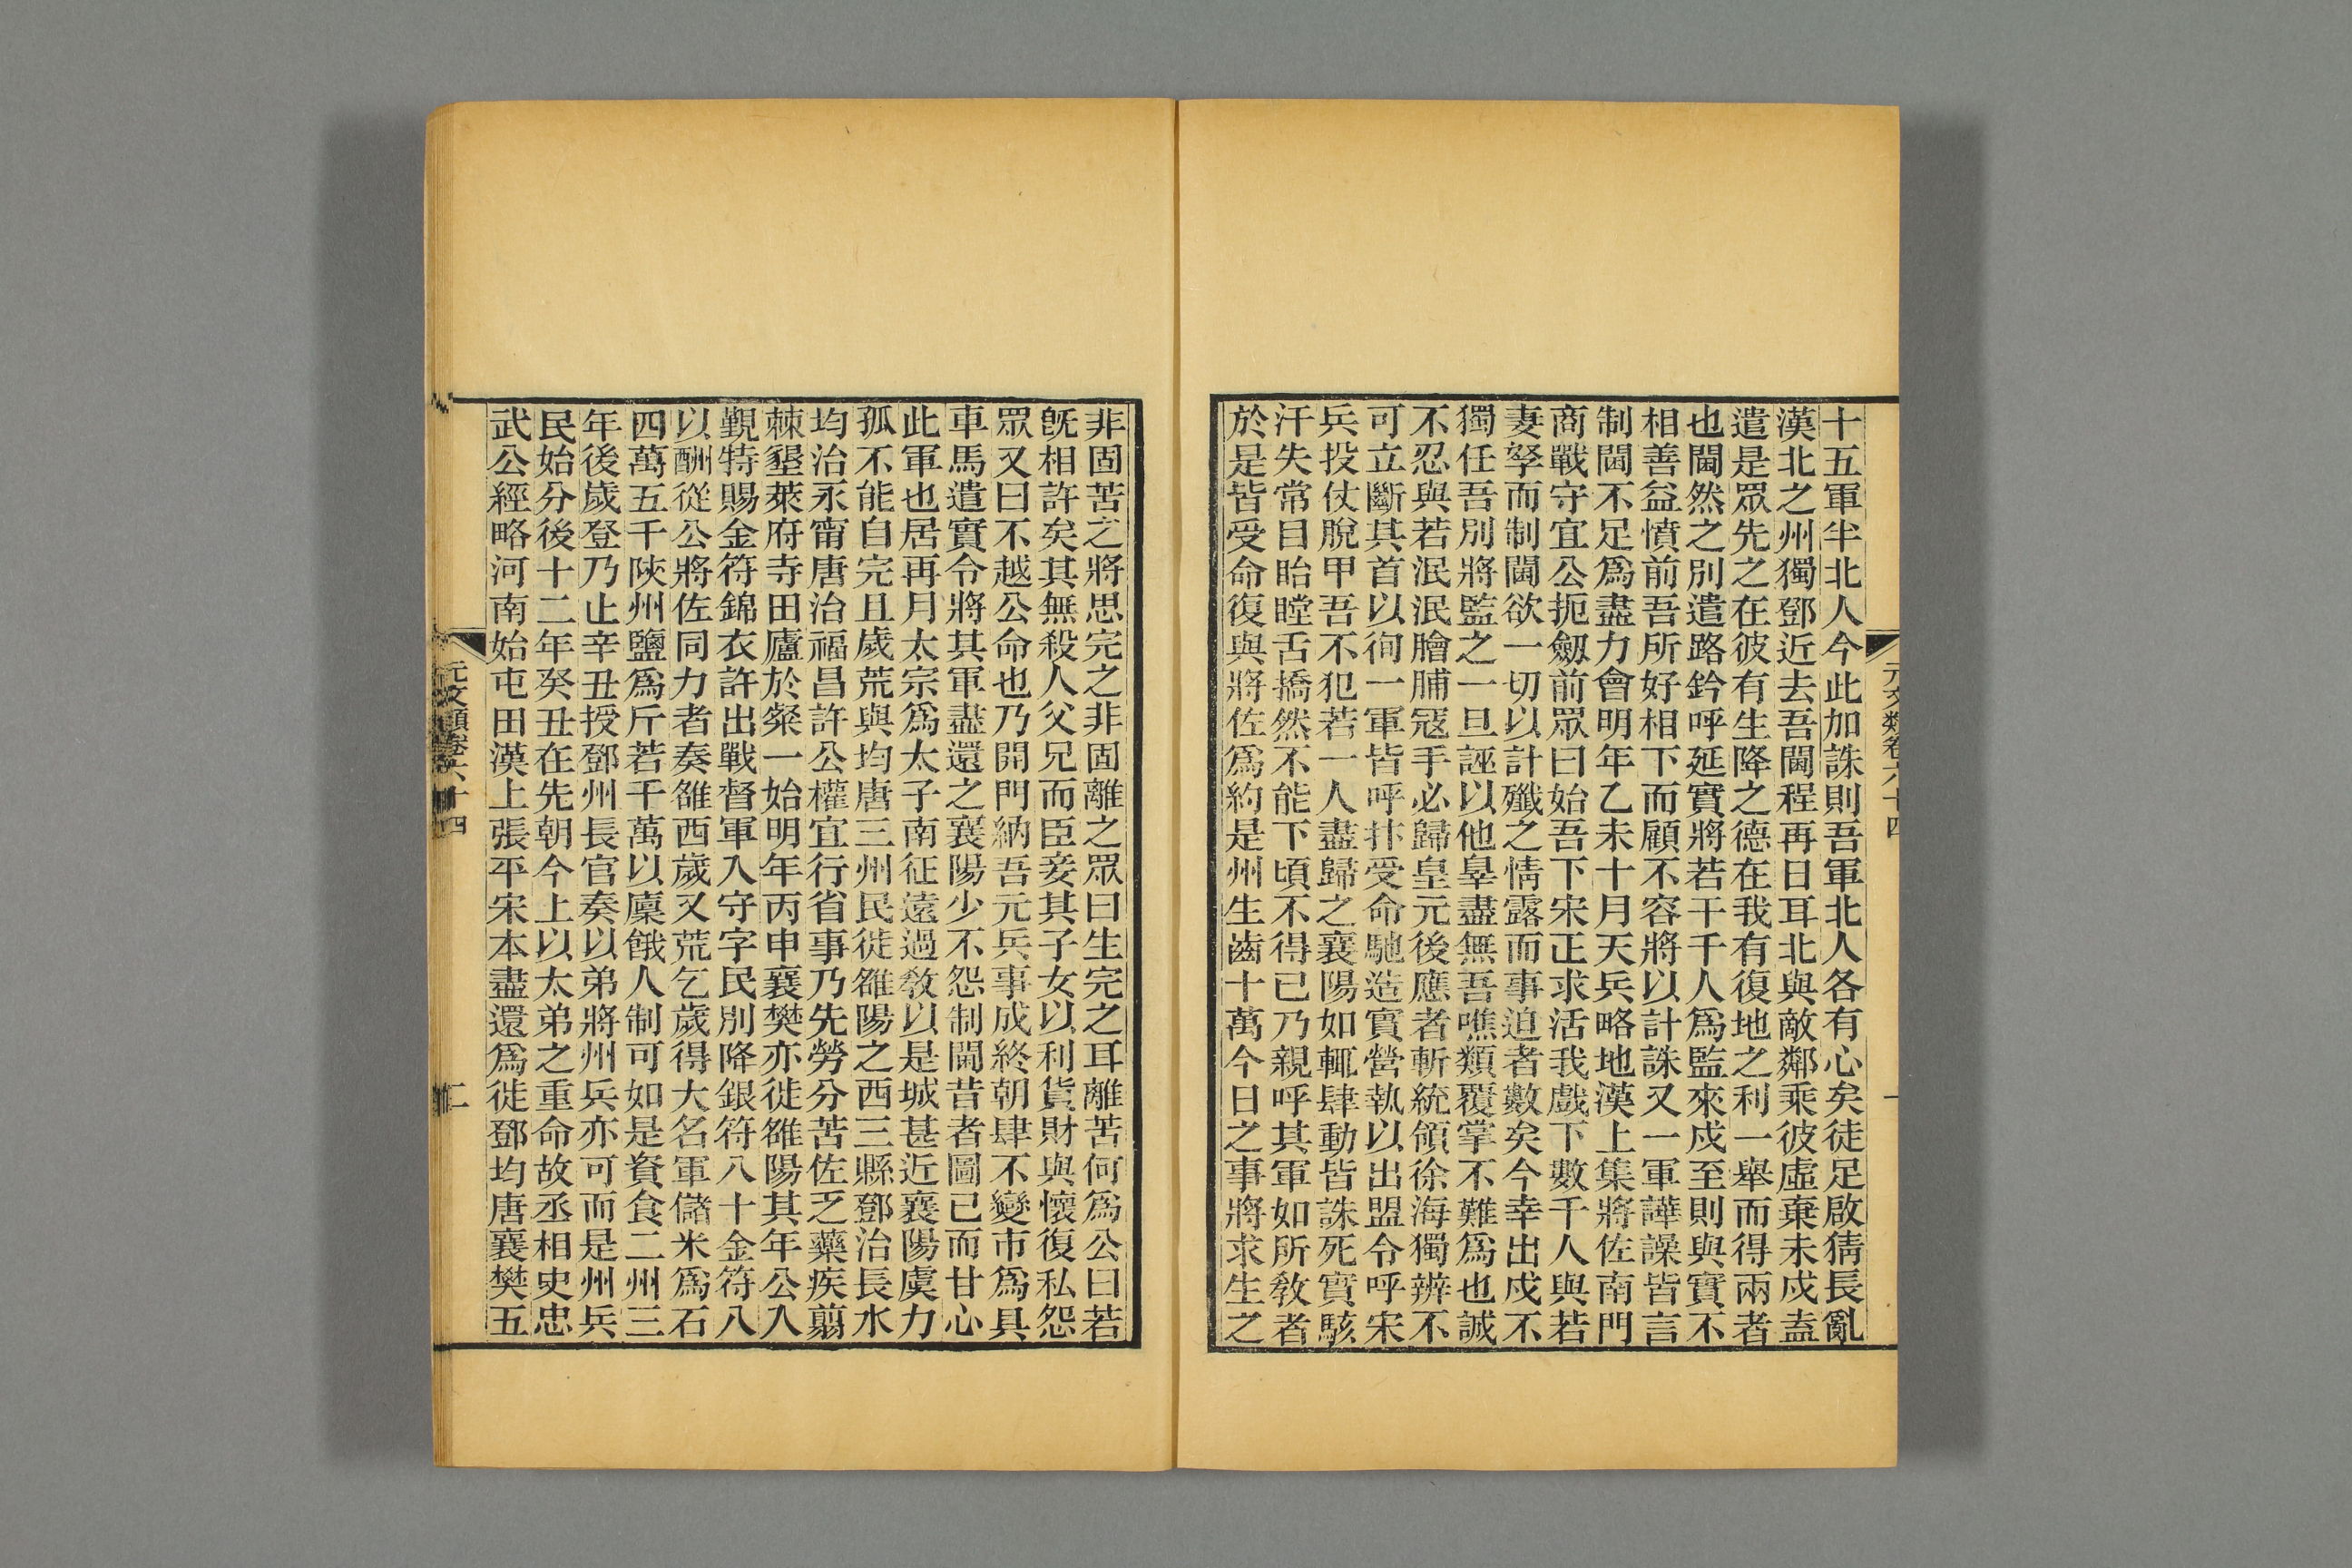 十五軍半北人今此加誅則吾軍北人各有心矣徒足啟猜長亂
漢北之州獨鄧近去吾閫程再日耳北與敵鄰乘彼虛棄未戍盍
遣是眾先之在彼有生降之德在我有復地之利一舉而得兩者
也閫然之別遣路鈐呼延實將若干千人爲監來戍至則與實不
相善益憤前吾所好相下而顧不容將以計誅又一軍譁譟皆言
制閫不足爲盡力會明年乙未十月天兵略地漢上集將佐南門
商戰守宜公扼劒前眾曰始吾下宋正求活我戲下數千人與若
妻孥而制閫欲一切以計殲之情露而事迫者數矣今幸出戍不
獨任吾別將監之一旦誣以他辠盡無吾噍類覆掌不難爲也誠
不忍與若泯泯膾脯寇手必歸皇元後應者斬統領徐海獨辨不
可立斷其首以徇一軍皆呼抃受命馳造實營執以出盟令呼宋
兵投仗脫甲吾不犯若一人盡歸之襄陽如輒肆動皆誅死實駭
汗失常目眙瞠舌撟然不能下頃不得已乃親呼其軍如所敎者
於是皆受命復與將佐爲約是州生齒十萬今日之事將求生之
元文類卷六十四
一
非固苦之將思完之非固離之眾曰生完之耳離苦何爲公曰若
旣相許矣其無殺人父兄而臣妾其子女以利貨財與懷復私怨
眾又曰不越公命也乃開門納吾元兵事成終朝肆不變市爲具
車馬遣實令將其軍盡還之襄陽少不怨制閫昔者圖已而甘心
此軍也居再月太宗爲太子南征遠過敎以是城甚近襄陽虞力
孤不能自完且歲荒與均唐三州民徙雒陽之西三縣鄧治長水
均治永甯唐治福昌許公權宜行省事乃先勞分苦佐乏藥疾翦
棘墾萊府寺田廬於粲一始明年丙申襄樊亦徙雒陽其年公入
覲特賜金符錦衣許出戰督軍入守字民別降銀符八十金符八
以酬從公將佐同力者奏雒西歲又荒乞歲得大名軍儲米爲石
四萬五千陝州鹽爲斤若干萬以廩餓人制可如是資食二州三
年後歲登乃止辛丑授鄧州長官奏以弟將州兵亦可而是州兵
民始分後十二年癸丑在先朝今上以太弟之重命故丞相史忠
武公經略河南始屯田漢上張平宋本盡還爲徙鄧均唐襄樊五
元文類卷六十四
二